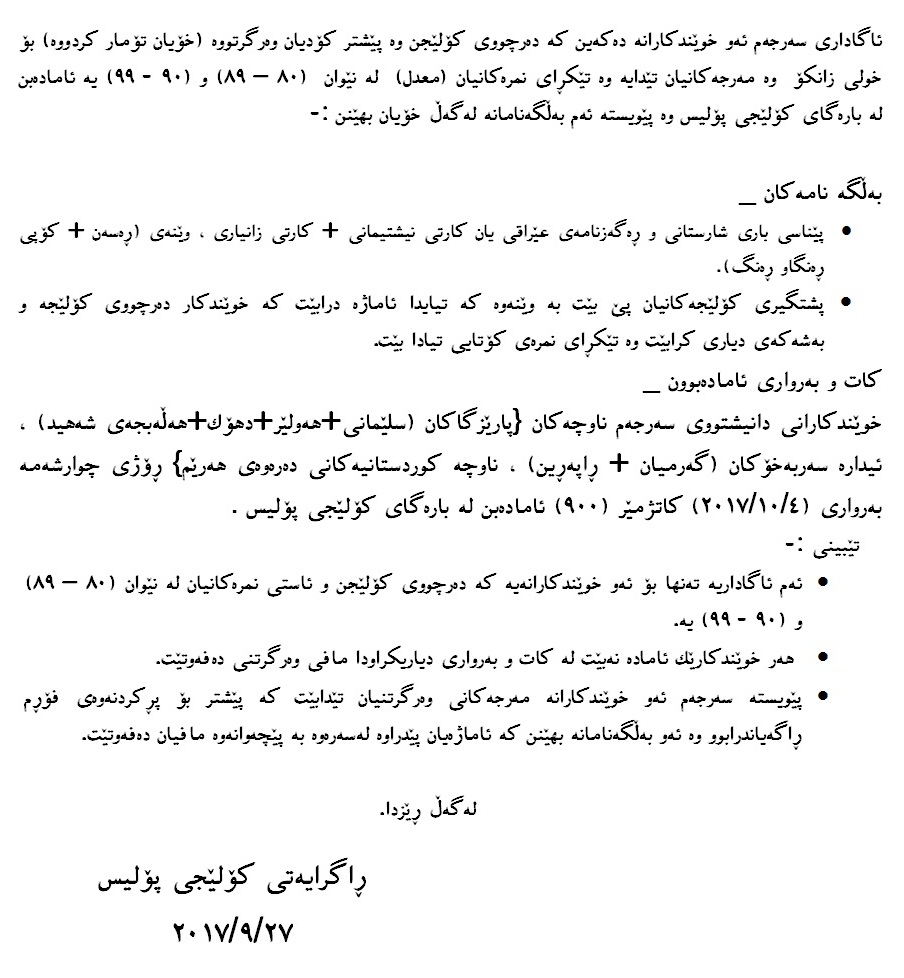 ئاگاداری سەرجەم ئەو خوێندکارانە دەکەین کە دەرچووی کۆلێجن وە پێشتر کۆدیان وەرگرتووە (خۆیان تۆمار کردووە) بۆ
خولی زانکۆ وە مەرجەکانیان تێدایە وە تێکڕای نمرەکانیان (معدل) لە نێوان (٨٠ – ٨٩) و (٩٠ - ٩٩) یە ئامادەبن
لە بارەگای کۆلێجی پۆلیس وە پێویستە ئەم بەڵگەنامانە لەگەڵ خۆیان بهێنن :-
بەڵگە نامەکان _
• پێناسی باری شارستانی و ڕەگەزنامەی عێراقی یان کارتی نیشتیمانی + کارتی زانیاری ، وێنەی (ڕەسەن + کۆپی
ڕەنگاو ڕەنگ).
• پشتگیری کۆلێجەکانیان پێ بێت بە وێنەوە کە تیایدا ئاماژە درابێت کە خوێندکار دەرچووی کۆلێجە و
بەشەکەی دیاری کرابێت وە تێکڕای نمرەی کۆتایی تیادا بێت.
کات و بەرواری ئامادەبوون _
خوێندکارانی دانیشتووی سەرجەم ناوچەکان {پارێزگاکان (سلێمانی+هەولێر+دهۆك+هەڵەبجەی شەهید) ،
ئیدارە سەربەخۆکان (گەرمیان + ڕاپەرین) ، ناوچە کوردستانیەکانی دەرەوەی هەرێم} ڕۆژی چوارشەمە
بەرواری (٢٠١٧/١٠/٤) کاتژمێر (٩٠٠) ئامادەبن لە بارەگای کۆلێجی پۆلیس .
تێبینی :-
• ئەم ئاگاداریە تەنها بۆ ئەو خوێندکارانەیە کە دەرچووی کۆلێجن و ئاستی نمرەکانیان لە نێوان (٨٠ – ٨٩)
و (٩٠ - ٩٩) یە.
• هەر خوێندکارێك ئامادە نەبێت لە کات و بەرواری دیاریکراودا مافی وەرگرتنی دەفەوتێت.
• پێویستە سەرجەم ئەو خوێندکارانە مەرجەکانی وەرگرتنیان تێدابێت کە پێشتر بۆ پڕکردنەوەی فۆڕم
ڕاگەیاندرابوو وە ئەو بەڵگەنامانە بهێنن کە ئاماژەیان پێدراوە لەسەرەوە بە پێچەوانەوە مافیان دەفەوتێت.
لەگەڵ ڕێزدا.
ڕاگرایەتی کۆلێجی پۆلیس
٢٠١٧/٩/٢٧